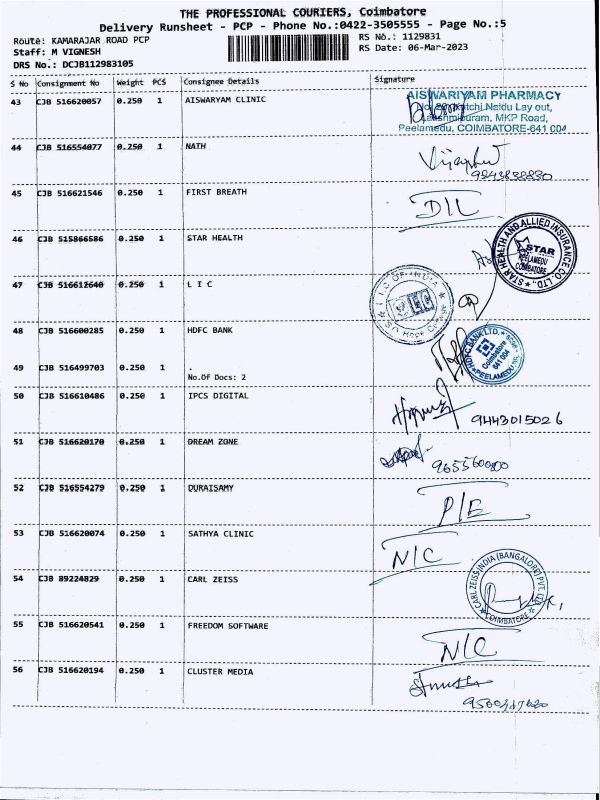 THE PROFESSIONAL COURIERS, Coimbatore
Delivery Runsheet - PCP - Phone No.:0422-3505555 - Page No.:5
Route: KAMARAJAR ROAD PCP
RS No.: 1129831
Staff: M VIGNESH
RS Date: 06-Mar-2023
DRS No.: DCJB112983105
S No Consignment No Weight PCS Consignee Details Signature
43 CJB 516620057 0.250 1 AISWARYAM CLINIC
AISWARIYAM PHARMACY
Lay out,
MKP Road,
Peelamedu, COIMBATORE-641 004
44 CJB 516554077 0.250 1 NATH
45 CJB 516621546 0.250 1 FIRST BREATH D/L
46 CJB 515866586 0.250 1 STAR HEALTH
STAR HEALTH AND ALLIED INSURANCE CO. LTD.
STAR
PEELAMEDU
COIMBATORE
47 CJB 516612640 0.250 1 L I C
L I C OF INDIA
LIC
48 CJB 516600285 0.250 1 HDFC BANK
HDFC BANK LTD.
Coimbatore
641 004
PEELAMEDU
49 CJB 516499703 0.250 1 .
No.Of Docs: 2
50 CJB 516610486 0.250 1 IPCS DIGITAL
9443015026
51 CJB 516620170 0.250 1 DREAM ZONE
52 CJB 516554279 0.250 1 DURAISAMY P/E
53 CJB 516620074 0.250 1 SATHYA CLINIC N/C
54 CJB 89224829 0.250 1 CARL ZEISS
CARL ZEISS INDIA (BANGALORE) PVT. LTD.
COIMBATORE
55 CJB 516620541 0.250 1 FREEDOM SOFTWARE N/C
56 CJB 516620194 0.250 1 CLUSTER MEDIA